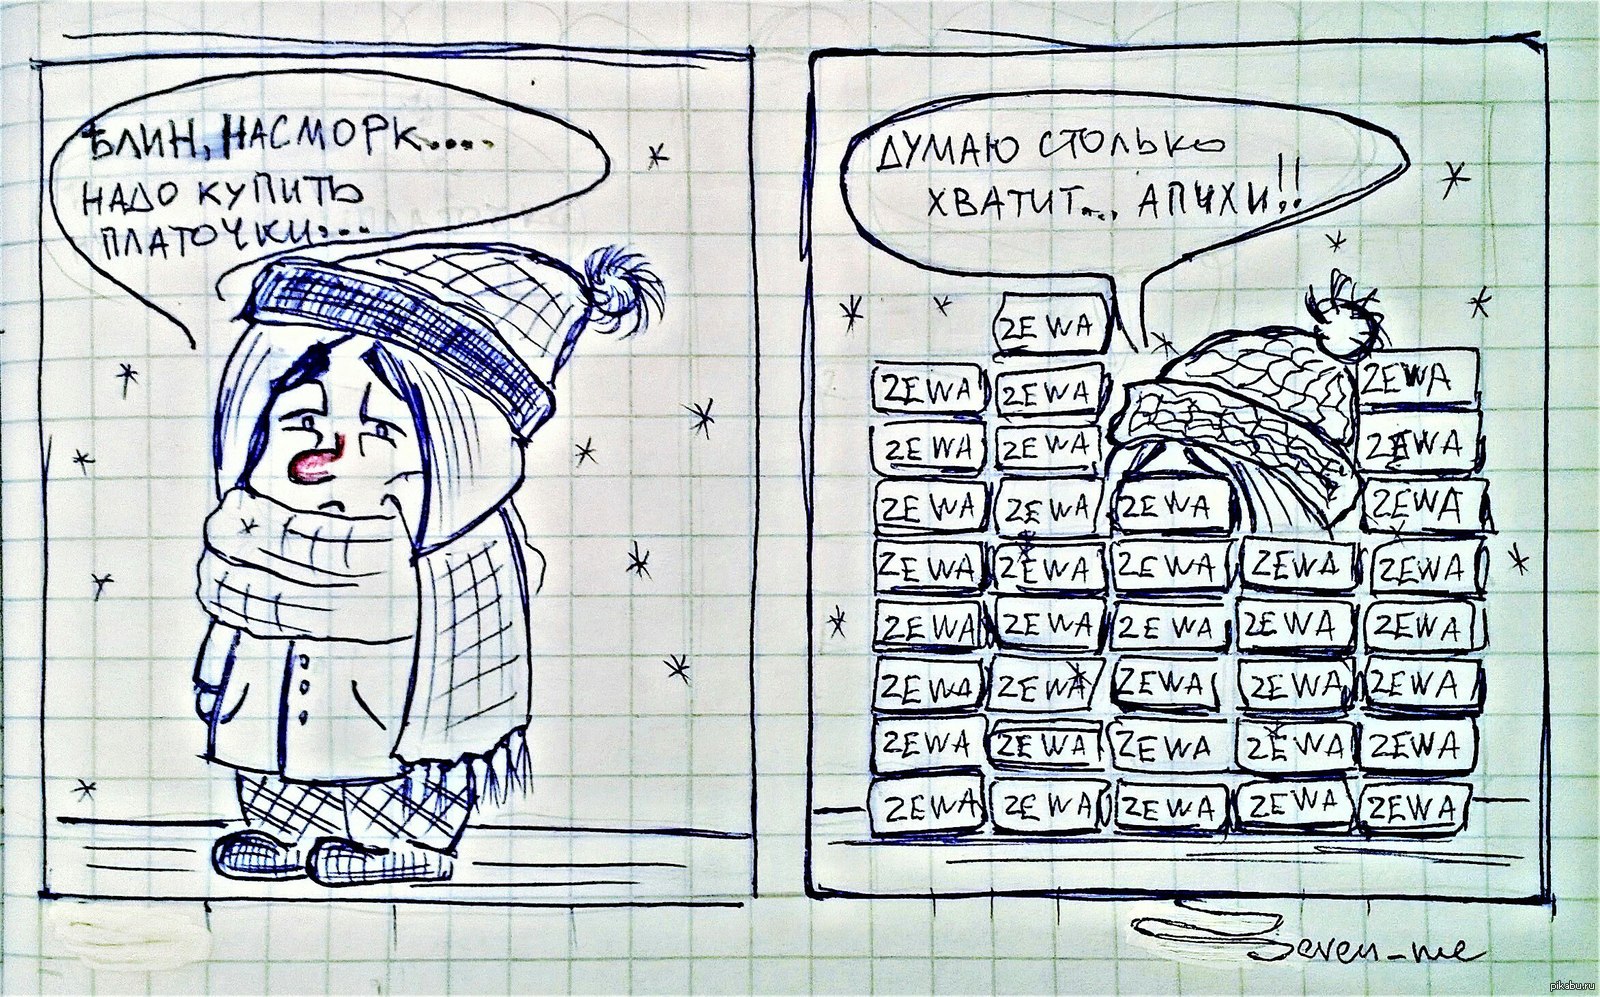 БЛИН, НАСМОРК.....
НАДО КУПИТЬ
ПЛАТОЧКИ....
ДУМАЮ СТОЛЬКО
ХВАТИТ... АПЧХИ!!
ZEWA
ZEWA ZEWA ZEWA
ZEWA ZEWA ZEWA
ZEWA ZEWA ZEWA ZEWA
ZEWA ZEWA ZEWA ZEWA ZEWA
ZEWA ZEWA ZEWA ZEWA ZEWA
ZEWA ZEWA ZEWA ZEWA ZEWA
ZEWA ZEWA ZEWA ZEWA ZEWA
ZEWA ZEWA ZEWA ZEWA ZEWA
Seven_me
pikabu.ru